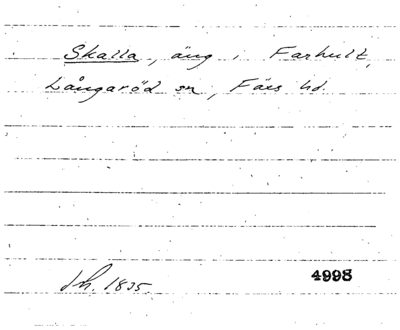 Skalla, äng i Farhult,
Långaröd sn, Färs hd.
sh. 1835
4998